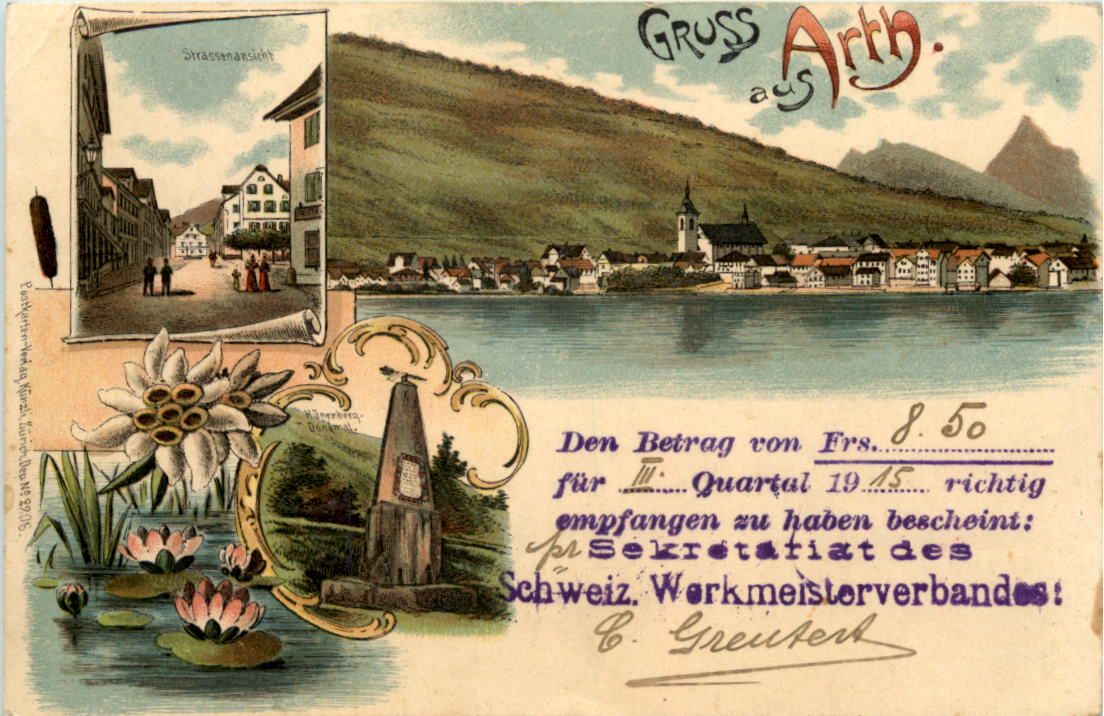 Gruss
aus Arth.
Strassenansicht
Hünerberg-
Denkmal.
Postkarten-Verlag Künzli, Zürich, Dep. No 2905.
Den Betrag von Frs. 8.50
für III. Quartal 1915 richtig
empfangen zu haben bescheint:
pr Sekretariat des
Schweiz. Werkmeisterverbandes:
C. Greutert